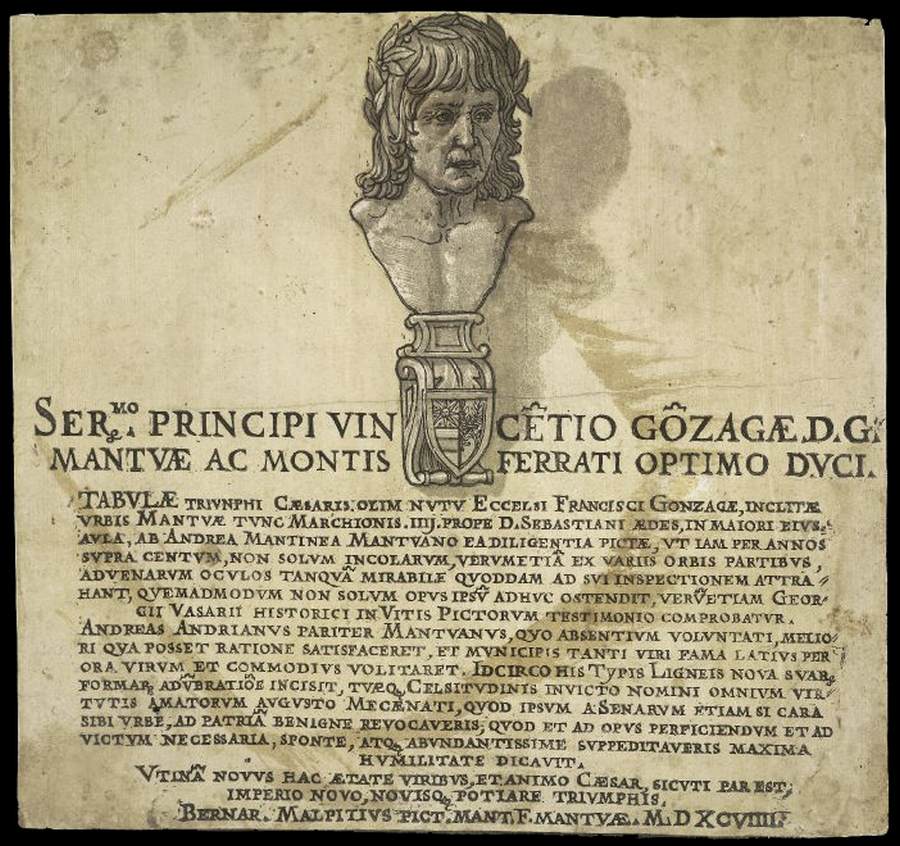 SER.ᴹᴼ PRINCIPI VINCÊTIO GÔZAGÆ.D.G.
MANTVÆ AC MONTIS FERRATI OPTIMO DVCI.
TABVLÆ TRIVNPHI CÆSARIS.OLIM NVTV ECCELSI FRANCISCI GONZAGÆ,INCLITÆ
VRBIS MANTVÆ TVNC MARCHIONIS.IIIJ.PROPE D.SEBASTIANI ÆDES,IN MAIORI EIVS
AVLA, AB ANDREA MANTINEA MANTVANO EA DILIGENTIA PICTÆ,VT IAM PER ANNOS
SVPRA CENTVM,NON SOLVM INCOLARVM,VERVMETIÃ EX VARIIS ORBIS PARTIBVS,
ADVENARVM OCVLOS TANQVÃ MIRABILE QVODDAM AD SVI INSPECTIONEM ATTRA⸗
HANT, QVEMADMODVM NON SOLVM OPVS IPSṼ ADHVC OSTENDIT, VERṼETIAM GEOR⸗
GII VASARII HISTORICI IN VITIS PICTORVM TESTIMONIO COMPROBATVR.
ANDREAS ANDRIANVS PARITER MANTVANVS,QVO ABSENTIVM VOLVNTATI, MELIO⸗
RI QVA POSSET RATIONE SATISFACERET, ET MVNICIPIS TANTI VIRI FAMA LATIVS PER
ORA VIRVM ET COMMODIVS VOLITARET. IDCIRCO HIS TYPIS LIGNEIS NOVA SVARꝫ
FORMARꝫ ADṼBRATIÕE INCISIT, TVÆQꝫ CELSITVDINIS INVICTO NOMINI OMNIVM VIR⸗
TVTIS AMATORVM AVGVSTO MECÆNATI,QVOD IPSVM A SENARVM ETIAM SI CARA
SIBI VRBE, AD PATRIÃ BENIGNE REVOCAVERIS; QVOD ET AD OPVS PERFICIENDVM ET AD
VICTVM NECESSARIA, SPONTE, ATQꝫ ABVNDANTISSIME SVPPEDITAVERIS MAXIMA
HVMILITATE DICAVIT.
VTINÃ NOVVS HAC ÆTATE VIRIBVS, ET ANIMO CÆSAR, SICVTI PAR EST,
IMPERIO NOVO, NOVISQꝫ POTIARE TRIVMPHIS.
BERNAR. MALPITIVS PICT. MANT. F. MANTVÆ. M.D XCVIIII.